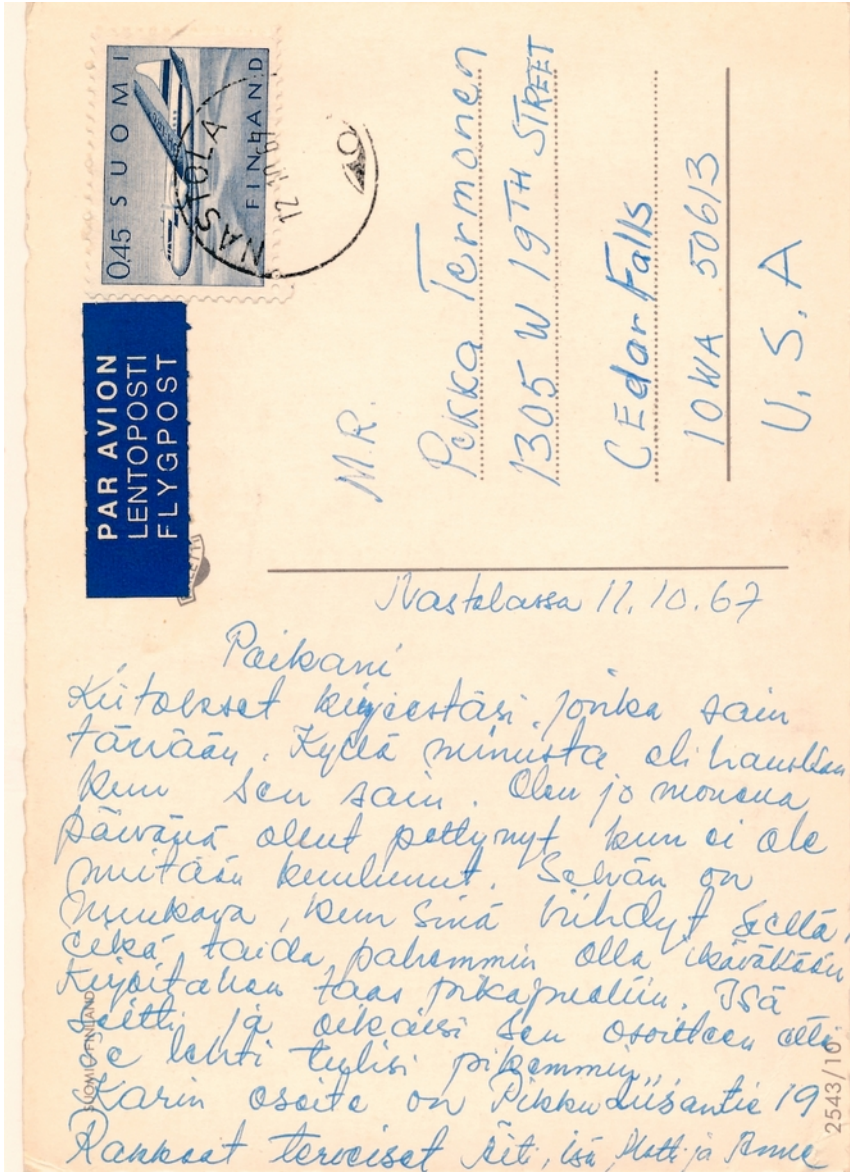 0,45 SUOMI
FINLAND
NASTOLA
12.10.67
PAR AVION
LENTOPOSTI
FLYGPOST
MR.
Pekka Termonen
1305 W 19TH STREET
CEdar Falls
IOWA 50613
U.S.A
Nastolassa 11.10.67
Poikani
Kiitokset kirjeestäsi, jonka sain
tänään. Kyllä minusta oli hauskaa
kun sen sain. Olen jo monena
päivänä ollut pettynyt, kun ei ole
mitään kuulunut. Sehän on
mukava, kun sinä viihdyt siellä,
eikä taida pahemmin olla ikäväkään
Kirjoitahan taas pikapuoliin. Isä
soitti ja oikaisi sen osoitteen että
se lehti tulisi pikemmin.
Karin osoite on Pikku Liisantie 19
Rakkaat terveiset Äiti, isä, Matti ja Anne
SUOMI FINLAND
2543/10